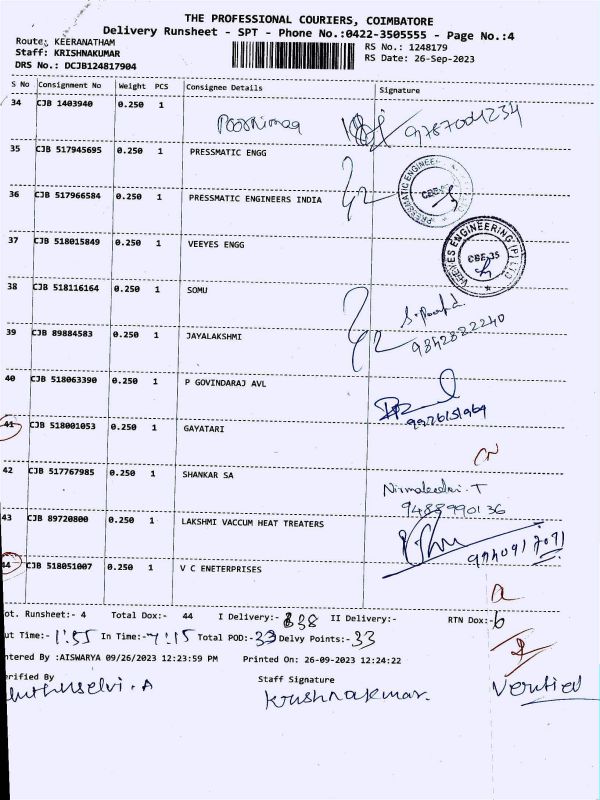 THE PROFESSIONAL COURIERS, COIMBATORE
Delivery Runsheet - SPT - Phone No.:0422-3505555 - Page No.:4
Route: KEERANATHAM
RS No.: 1248179
Staff: KRISHNAKUMAR
RS Date: 26-Sep-2023
DRS No.: DCJB124817904
S No Consignment No Weight PCS Consignee Details Signature
34 CJB 1403940 0.250 1
Poornimaa 9787001234
35 CJB 517945695 0.250 1 PRESSMATIC ENGG
36 CJB 517966584 0.250 1 PRESSMATIC ENGINEERS INDIA
37 CJB 518015849 0.250 1 VEEYES ENGG
VEEYES ENGINEERING (P) LTD CBE-35
38 CJB 518116164 0.250 1 SOMU
39 CJB 89884583 0.250 1 JAYALAKSHMI
9842882240
40 CJB 518063390 0.250 1 P GOVINDARAJ AVL
41 CJB 518001053 0.250 1 GAYATARI
42 CJB 517767985 0.250 1 SHANKAR SA
9488990136
43 CJB 89720800 0.250 1 LAKSHMI VACCUM HEAT TREATERS
44 CJB 518051007 0.250 1 V C ENETERPRISES
ot. Runsheet:- 4 Total Dox:- 44 I Delivery:- 38 II Delivery:- RTN Dox:-6
ut Time:- 1:55 In Time:-7:15 Total POD:-33 Delvy Points:-33
ntered By :AISWARYA 09/26/2023 12:23:59 PM Printed On: 26-09-2023 12:24:22
erified By Staff Signature
uthuselvi.A Krushnakumar. Verified